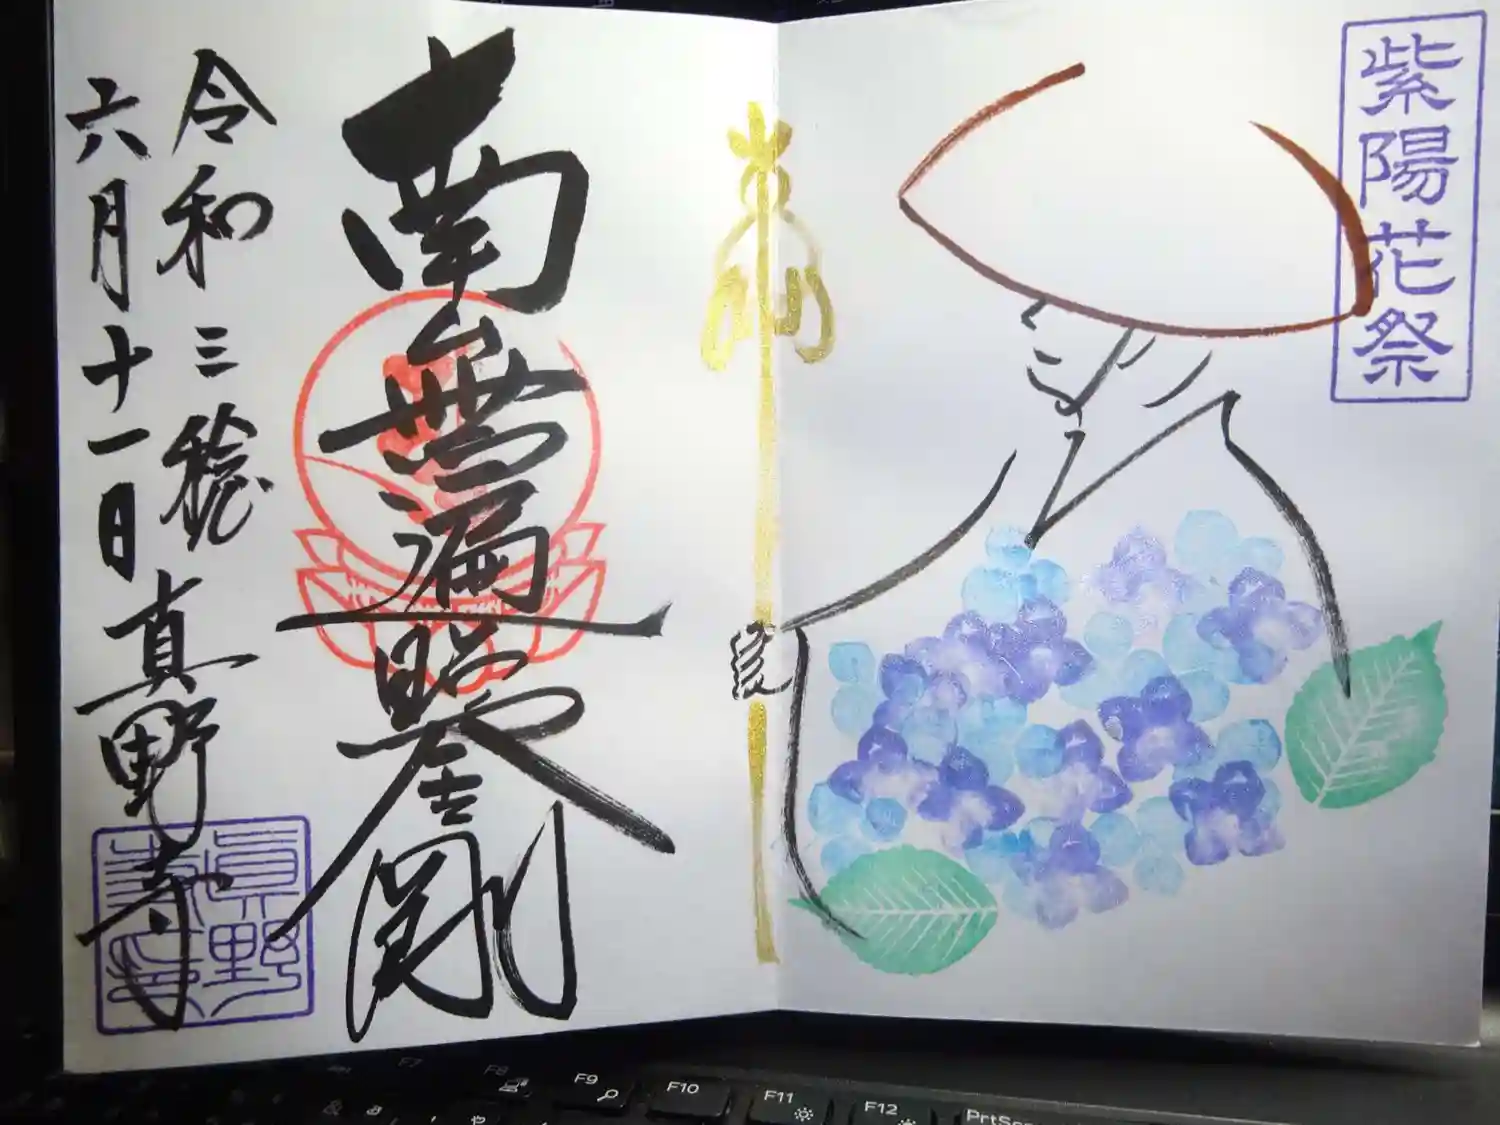 紫陽花祭
南無遍照金剛
令和三稔
六月十一日
真野寺
眞野
寺印
F7
F8
F9
F10
F11
F12
PrtScr